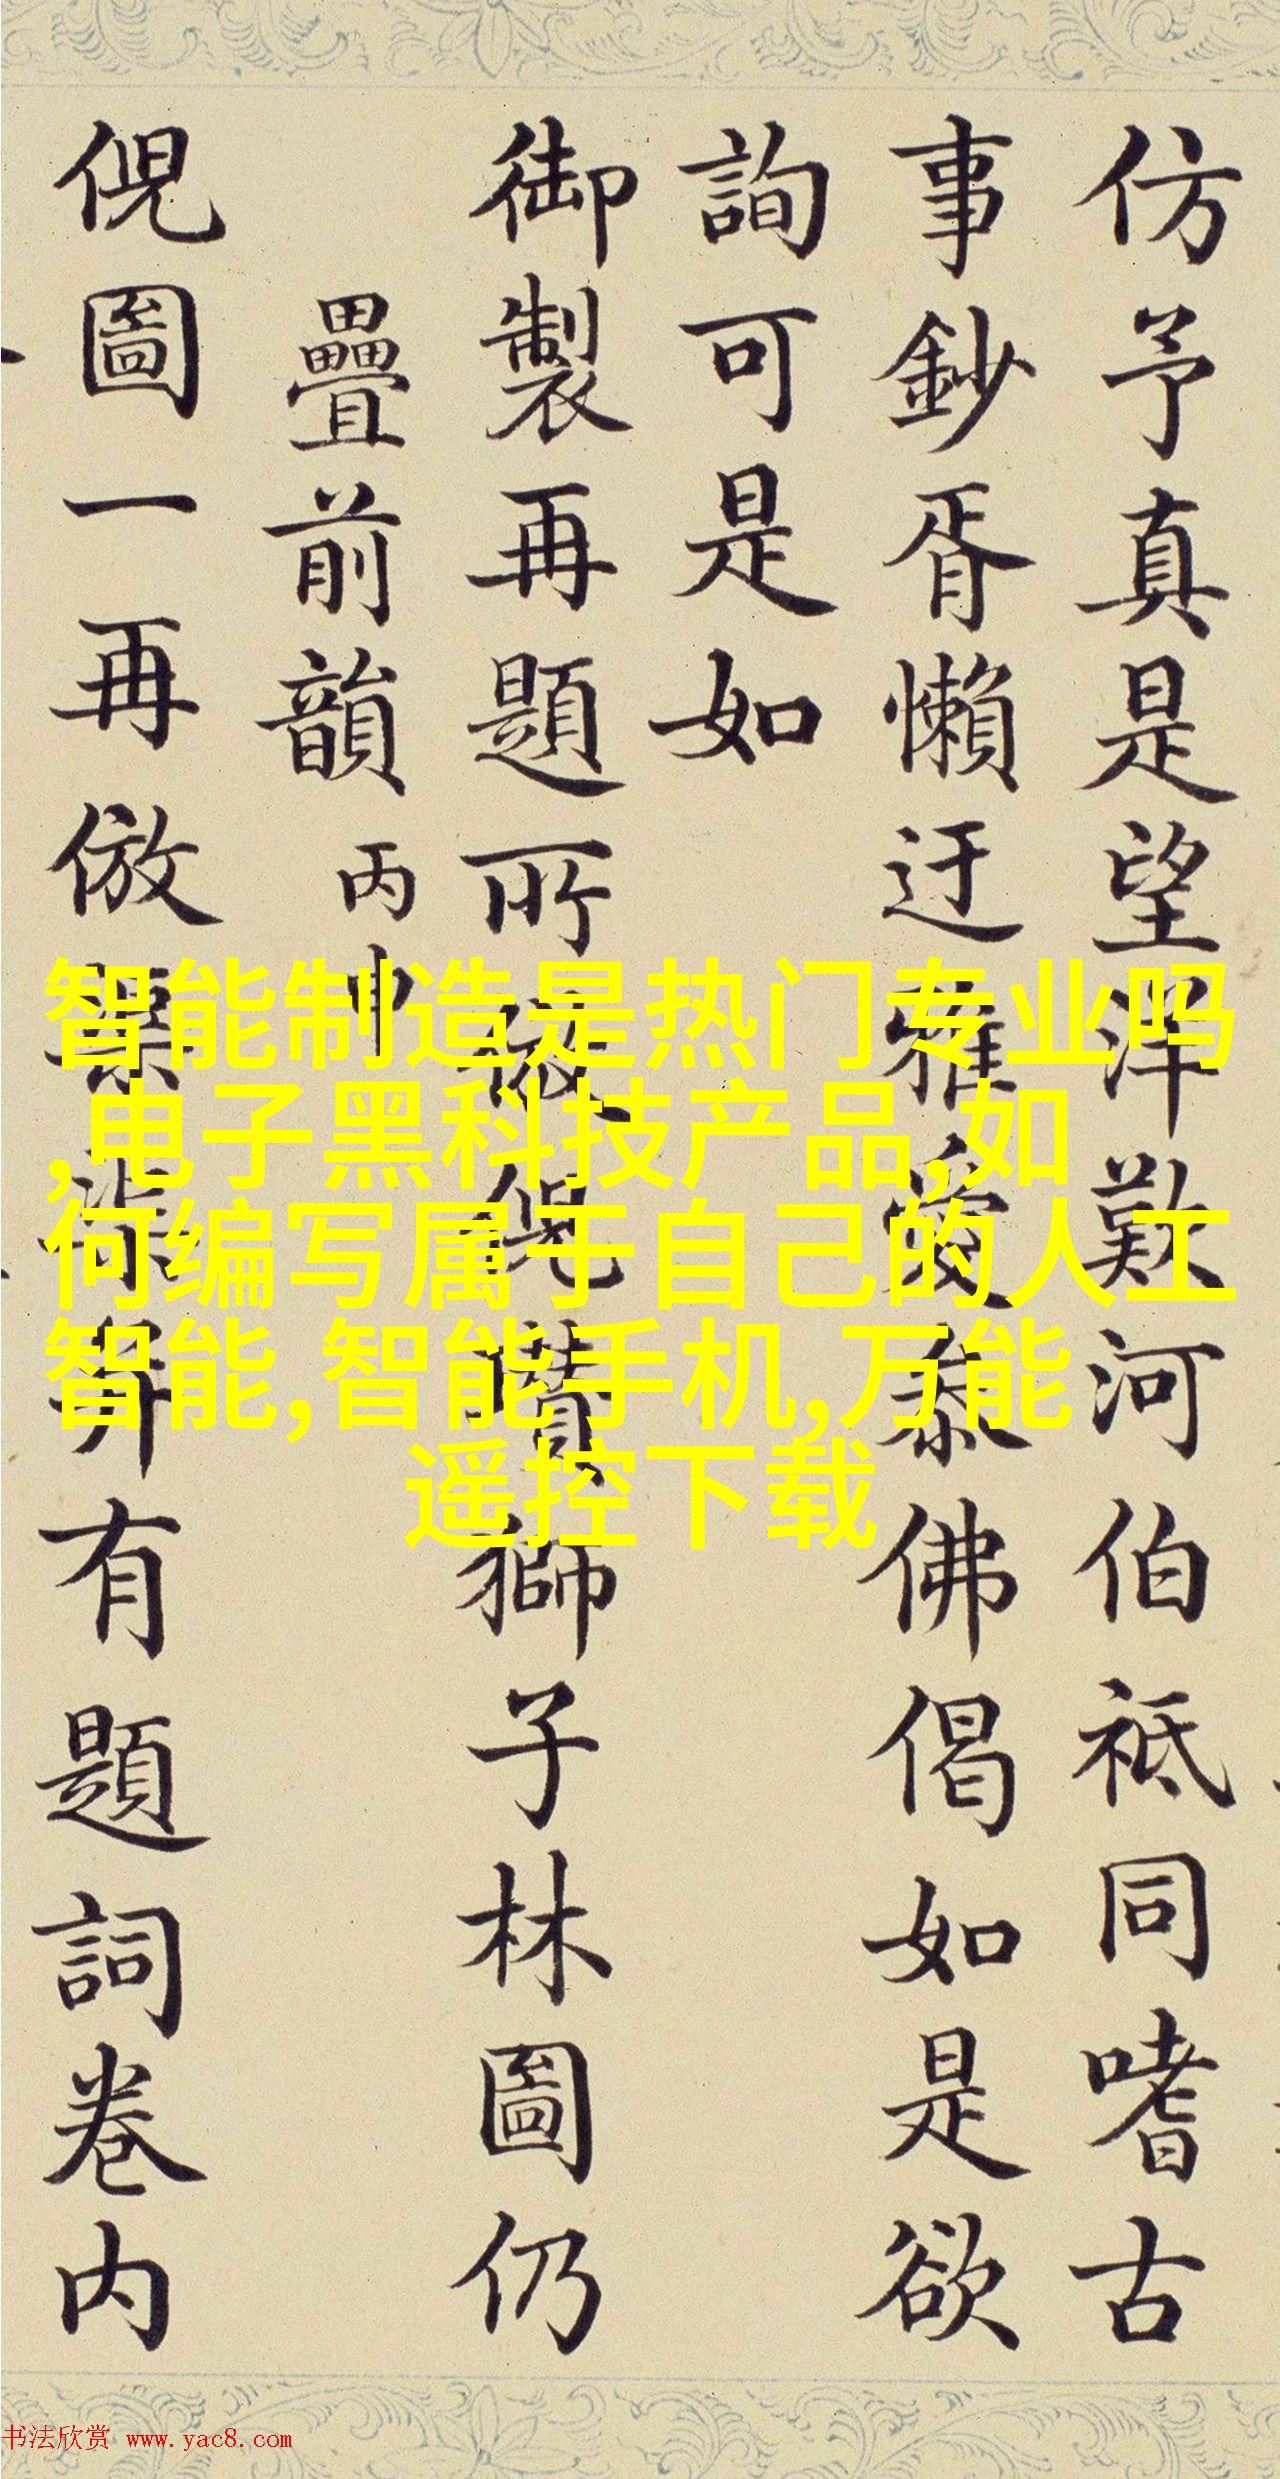 仿予真是望洋歎河伯祗同嗜古
事鈔胥懶迂雅愛佛偈如是欲
詢可是如
御製再題所倪瓚獅子林圖仍
疊前韻 丙申
倪圖一再倣弆有題詞卷内
智能制造是热门专业吗
,电子黑科技产品,如
何编写属于自己的人工
智能,智能手机,万能
遥控下载
书法欣赏 www.yac8.com